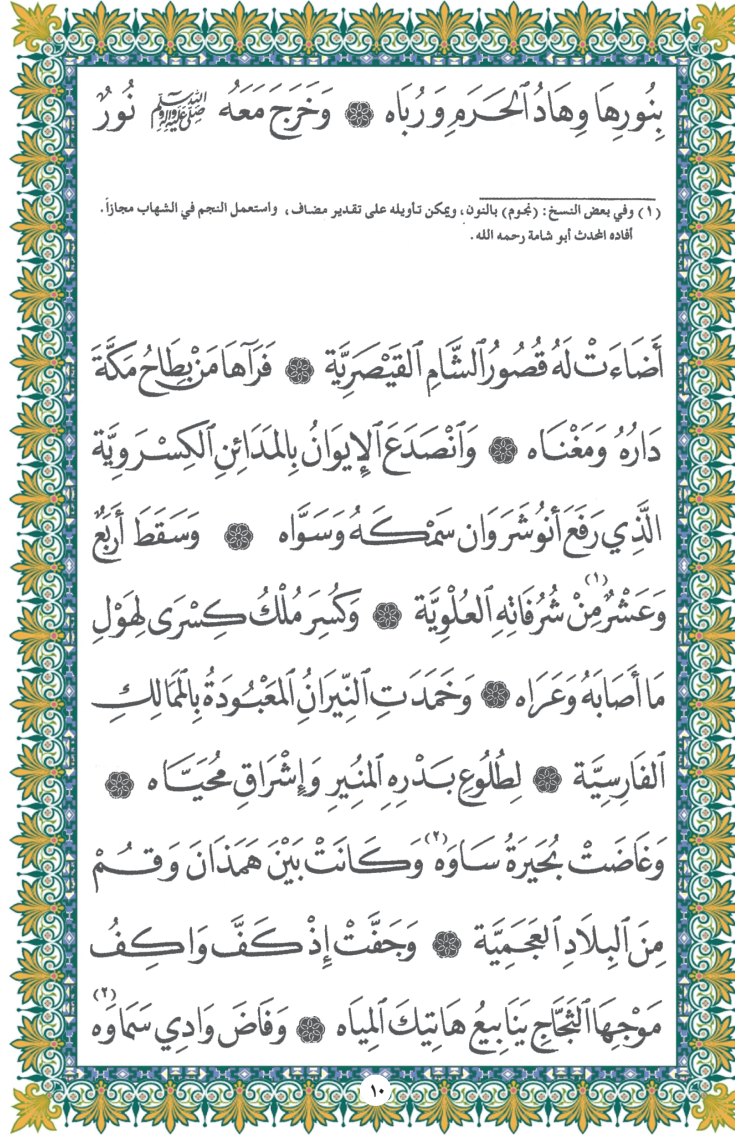 بِنُورِهَا وِهَادُ ٱلْحَرَمِ وَرُبَاه ۞ وَخَرَجَ مَعَهُ ﷺ نُورٌ
(١) وفي بعض النسخ: (نجوم) بالنون، ويمكن تأويله على تقدير مضاف، واستعمل النجم في الشهاب مجازاً.
أفاده المحدث أبو شامة رحمه الله.
أَضَاءَتْ لَهُ قُصُورُ ٱلشَّامِ ٱلقَيْصَرِيَّة ۞ فَرَآهَا مَنْ بِطَاحُ مَكَّةَ
دَارُهُ وَمَغْنَاه ۞ وَٱنْصَدَعَ ٱلإِيوَانُ بِالمَدَائِنِ ٱلكِسْرَوِيَّة
الَّذِي رَفَعَ أَنُوشَرَوَان سَمْكَهُ وَسَوَّاه ۞ وَسَقَطَ أَرْبَعٌ
وَعَشْرٌ مِنْ شُرُفَاتِهِ ٱلعُلْوِيَّة (١) ۞ وَكُسِرَ مُلْكُ كِسْرَى لِهَوْلِ
مَا أَصَابَهُ وَعَرَاه ۞ وَخَمَدَتِ ٱلنِّيرَانُ ٱلمَعْبُودَةُ بِالمَمَالِكِ
ٱلفَارِسِيَّة ۞ لِطُلُوعِ بَدْرِهِ ٱلمُنِيرِ وَإِشْرَاقِ مُحَيَّاه ۞
وَغَاضَتْ بُحَيْرَةُ سَاوَه (٢) وَكَانَتْ بَيْنَ هَمَذَانَ وَقُمْ
مِنَ ٱلبِلَادِ ٱلعَجَمِيَّة ۞ وَجَفَّتْ إِذْ كَفَّ وَاكِفُ
مَوْجِهَا ٱلثَّجَّاجِ يَنَابِيعُ هَاتِيكَ ٱلمِيَاه ۞ وَفَاضَ وَادِي سَمَاوَه (٢)
١٠